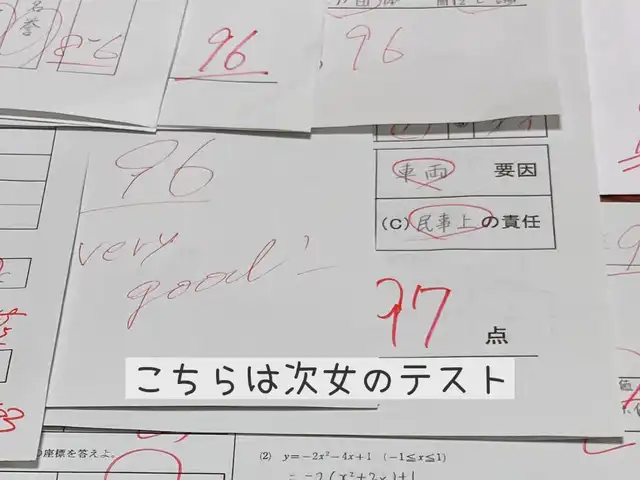 名誉
8-6
96
96
96
very
good!
車両 要因
(C) 民事上 の責任
97 点
こちらは次女のテスト
の座標を答えよ。
(2) y=-2x²-4x+1 (-1≦x≦1)
=-2(x²+2x)+1